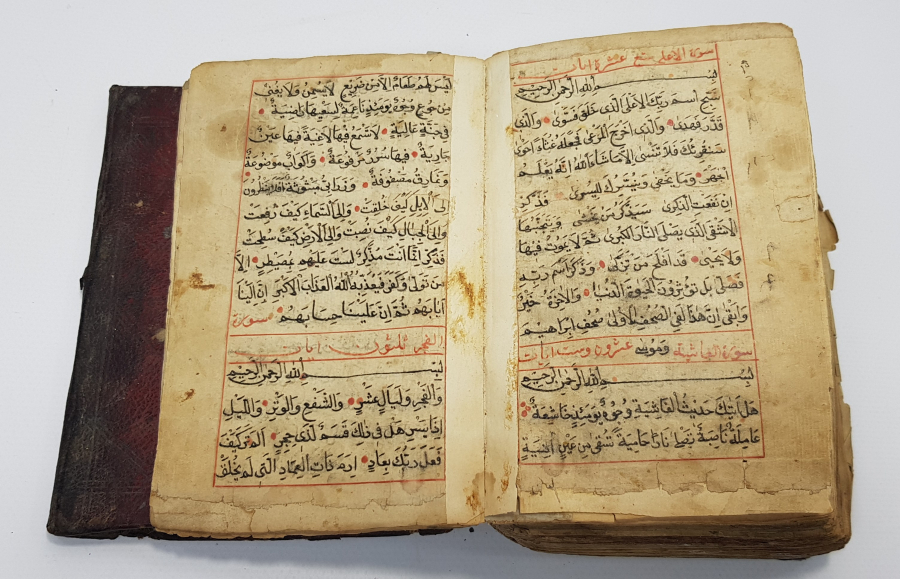 سورة الاعلى تسع عشرة ايات
بسم الله الرحمن الرحيم
سبح اسم ربك الاعلى الذى خلق فسوى والذى
قدر فهدى والذى اخرج المرعى فجعله غثاء احوى
سنقرئك فلا تنسى الا ما شاء الله انه يعلم
الجهر وما يخفى ونيسرك لليسرى فذكر
ان نفعت الذكرى سيذكر من يخشى ويتجنبها
الاشقى الذى يصلى النار الكبرى ثم لا يموت فيها
ولا يحيى قد افلح من تزكى وذكر اسم ربه
فصلى بل تؤثرون الحيوة الدنيا والاخرة خير
وابقى ان هذا لفى الصحف الاولى صحف ابراهيم
سورة الغاشية وموسى عشرون وست ايات
بسم الله الرحمن الرحيم
هل اتيك حديث الغاشية وجوه يومئذ خاشعة
عاملة ناصبة تصلى نارا حامية تسقى من عين انية
ليس لهم طعام الا من ضريع لا يسمن ولا يغنى
من جوع وجوه يومئذ ناعمة لسعيها راضية
فى جنة عالية لا تسمع فيها لاغية فيها عين
جارية فيها سرر مرفوعة واكواب موضوعة
ونمارق مصفوفة وزرابى مبثوثة افلا ينظرون
الى الابل كيف خلقت والى السماء كيف رفعت
والى الجبال كيف نصبت والى الارض كيف سطحت
فذكر انما انت مذكر لست عليهم بمصيطر الا
من تولى وكفر فيعذبه الله العذاب الاكبر ان الينا
ايابهم ثم ان علينا حسابهم سورة
الفجر ثلثون ايات
بسم الله الرحمن الرحيم
والفجر وليال عشر والشفع والوتر والليل
اذا يسر هل فى ذلك قسم لذى حجر الم تر كيف
فعل ربك بعاد ارم ذات العماد التى لم يخلق